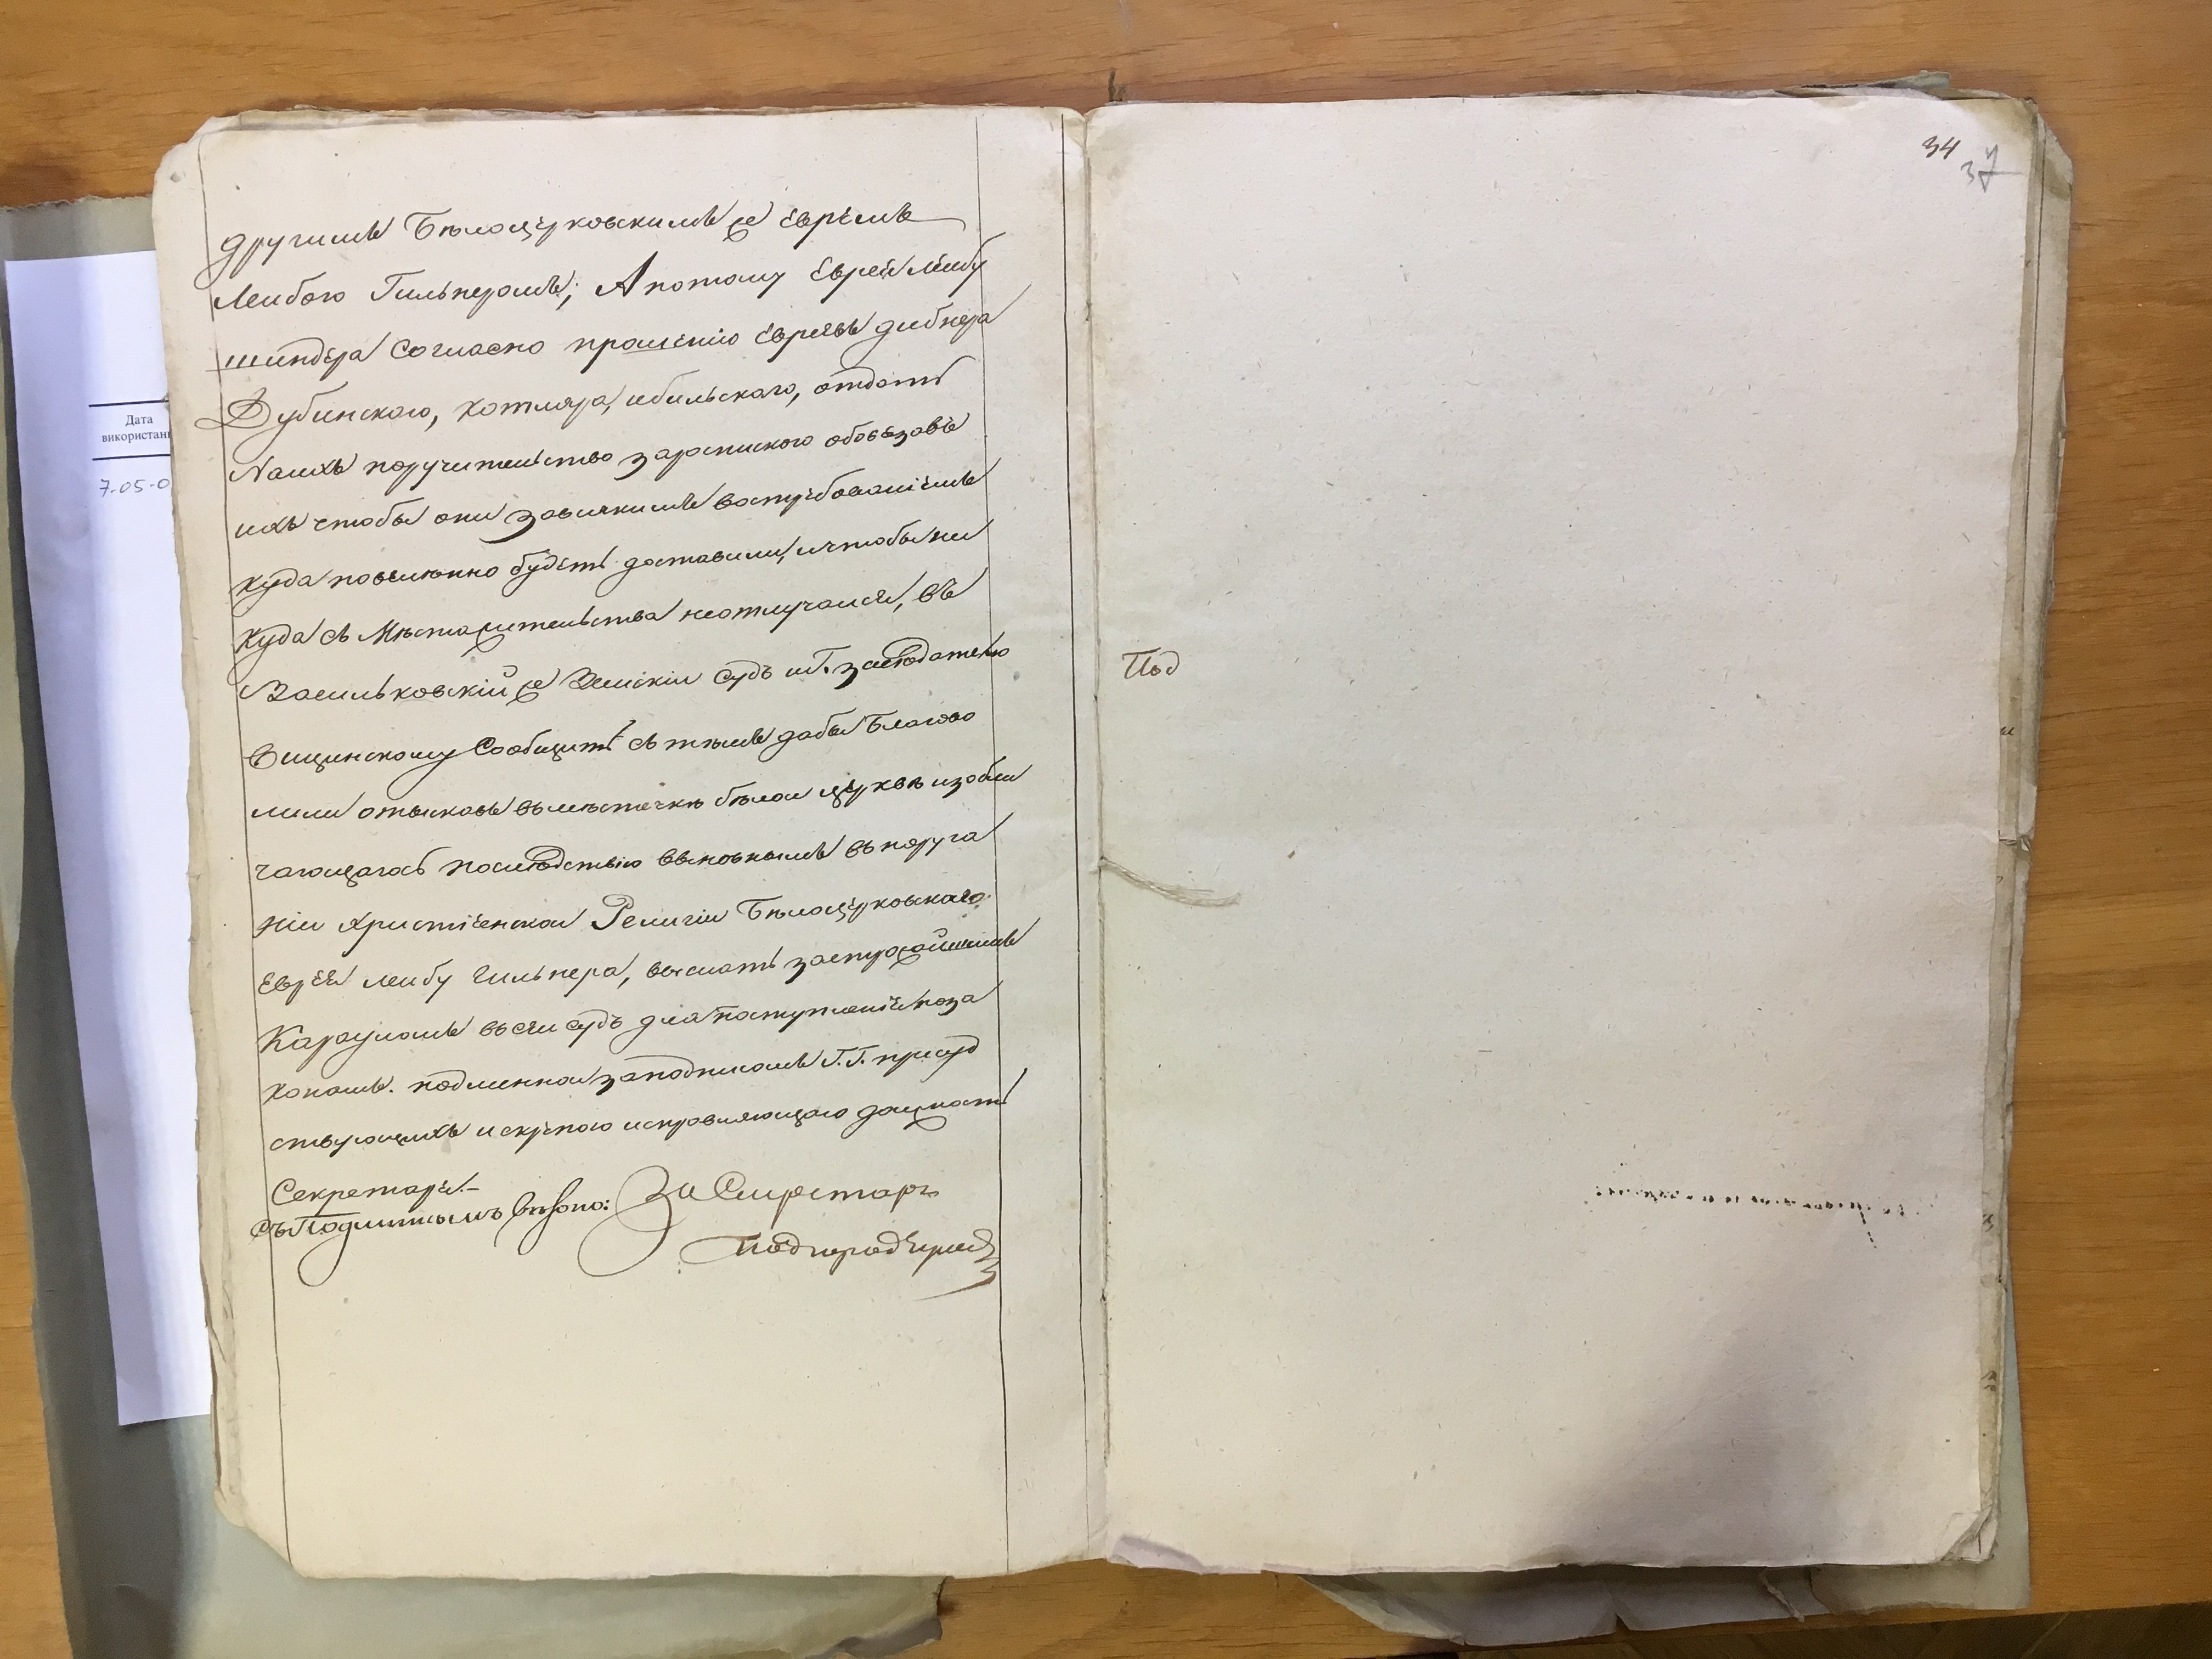 другимъ Бѣлоцерковскимъ же Евреемъ
Лейбою Гильперомъ; А потому Еврея Лейбу
шиндера согласно прошенію Евреевъ
Дубинского, котляра, ибильского, отдать
Наихъ поручительство зароспискою обовязавъ
ихъ чтобы они завсякимъ вострѣбованіемъ
куда повелѣнно будетъ доставили, ичтобы ни
куда съ Мѣстажительства неотлучался, въ
Васильковскій же Земскіи судъ иГ. заседателю
сообщить съ тѣмъ дабы Благово
лили отыскавъ вмѣстечкѣ бѣлои церквѣ изобли
чающагось послѣдствію виновнымъ въ поруга
ніи христіенскои Религіи Бѣлоцерковскаго
Еврея лейбу Гильпера, выслать застрожайшимъ
Карауломъ всеи судъ для поступленіе поза
конамъ. подлинная заподписомъ Г.Г. присуд
ствующихъ искрепою исправляющаго должность
Секретаря.
Съ Подлиннымъ вѣрно: За Секретаря
34
37
Под
Дата
використан
7-05-0